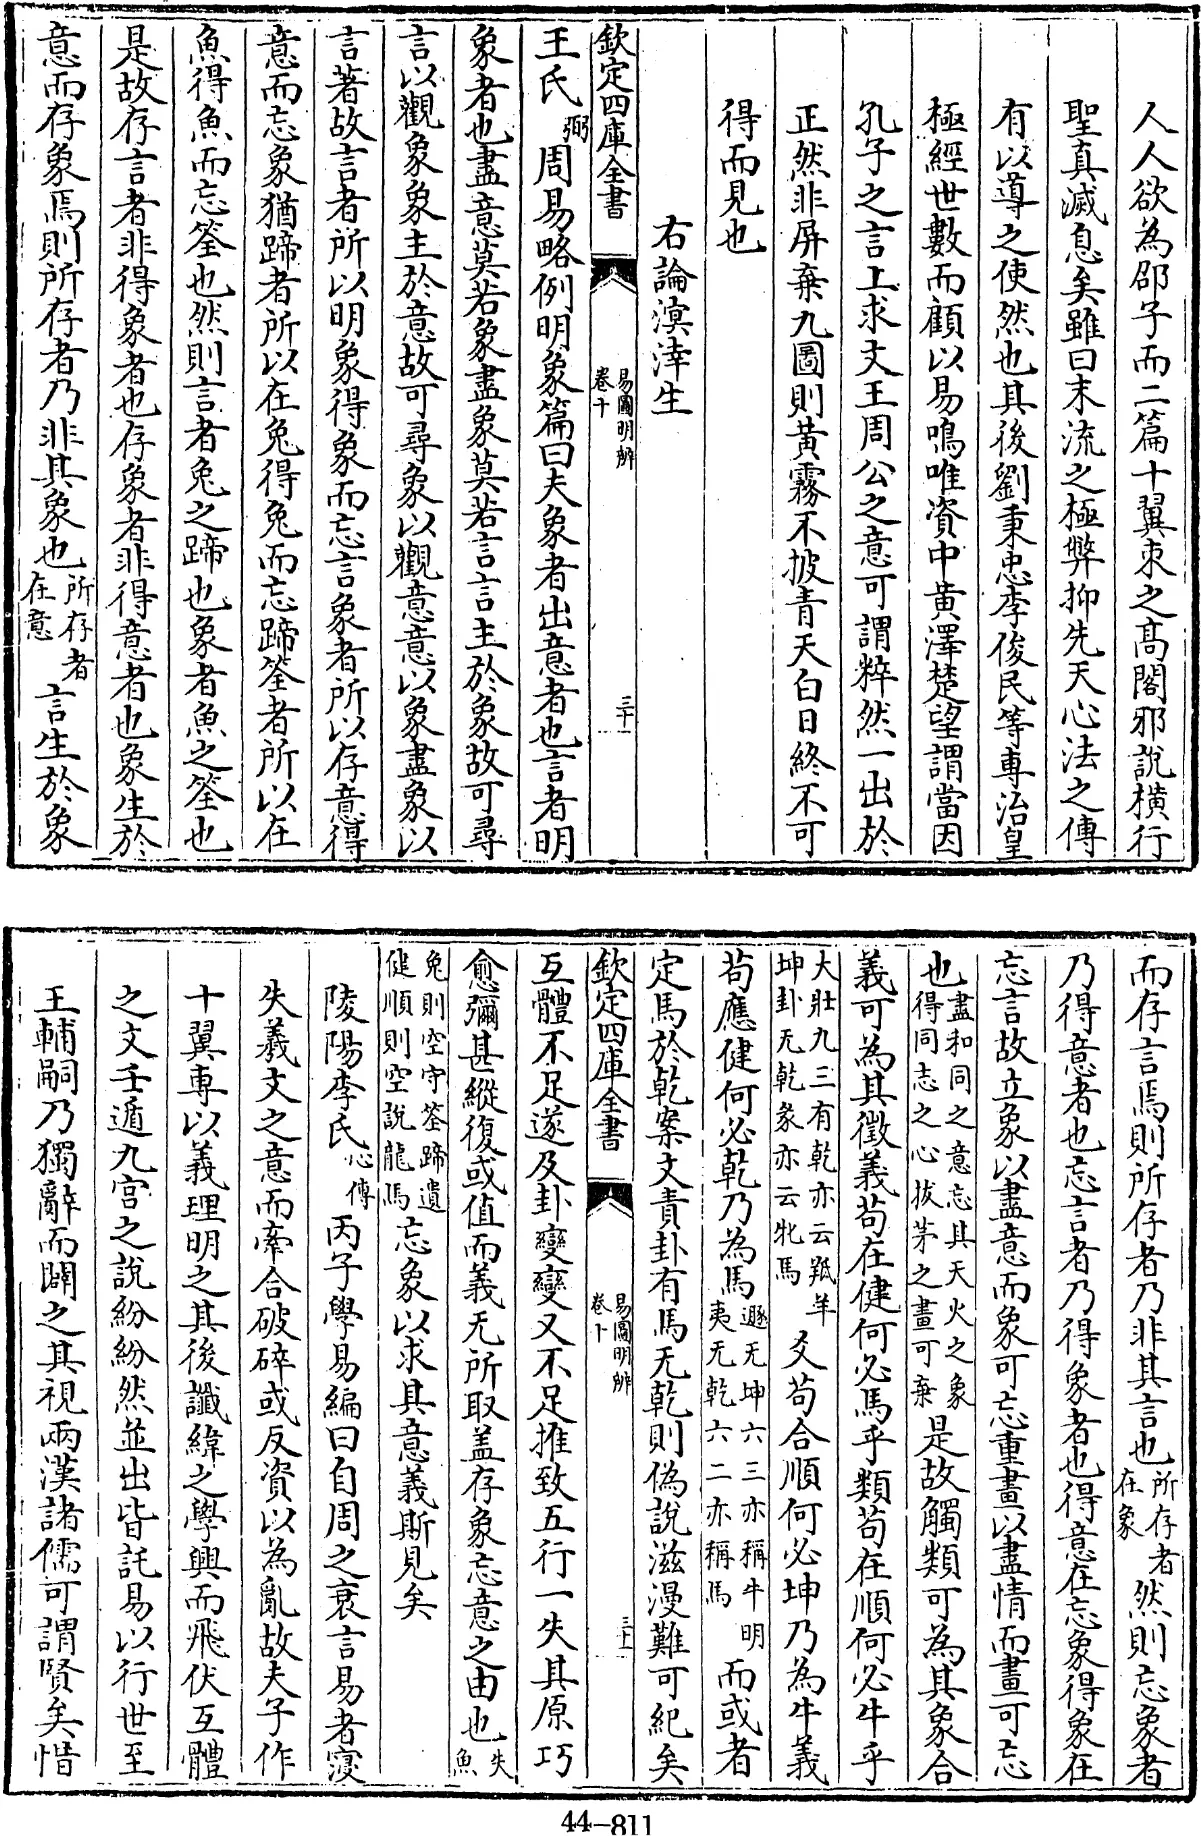 人人欲為邵子而二篇十翼束之髙閣邪說橫行
聖真滅息矣雖曰末流之極弊抑先天心法之傳
有以導之使然也其後劉秉忠李俊民等專治皇
極經世數而顧以易鳴唯資中黄澤楚望謂當因
孔子之言上求文王周公之意可謂粹然一出於
正然非屏棄九圖則黄霧不披青天白日終不可
得而見也
右論溟涬生
欽定四庫全書
易圖明辨
卷十
三十一
王氏弼周易略例明象篇曰夫象者出意者也言者明
象者也盡意莫若象盡象莫若言言主於象故可尋
言以觀象象主於意故可尋象以觀意意以象盡象以
言著故言者所以明象得象而忘言象者所以存意得
意而忘象猶蹄者所以在兔得兔而忘蹄筌者所以在
魚得魚而忘筌也然則言者兔之蹄也象者魚之筌也
是故存言者非得象者也存象者非得意者也象生於
意而存象焉則所存者乃非其象也所存者在意言生於象
而存言焉則所存者乃非其言也所存者在象然則忘象者
乃得意者也忘言者乃得象者也得意在忘象得象在
忘言故立象以盡意而象可忘重畫以盡情而畫可忘
也盡和同之意忘其天火之象得同志之心拔茅之畫可棄是故觸類可為其象合
義可為其徵義苟在健何必馬乎類苟在順何必牛乎
大壯九三有乾亦云羝羊坤卦无乾彖亦云牝馬爻苟合順何必坤乃為牛義
苟應健何必乾乃為馬遯无坤六三亦稱牛明夷无乾六二亦稱馬而或者
定馬於乾案文責卦有馬无乾則偽說滋漫難可紀矣
欽定四庫全書
易圖明辨
卷十
三十二
互體不足遂及卦變變又不足推致五行一失其原巧
愈彌甚縱復或值而義无所取蓋存象忘意之由也失魚
兔則空守筌蹄遺健順則空說龍馬忘象以求其意義斯見矣
陵陽李氏心傳丙子學易編曰自周之衰言易者寖
失羲文之意而牽合破碎或反資以為亂故夫子作
十翼專以義理明之其後讖緯之學興而飛伏互體
之文壬遁九宫之說紛紛然並出皆託易以行世至
王輔嗣乃獨辭而闢之其視兩漢諸儒可謂賢矣惜
44-811